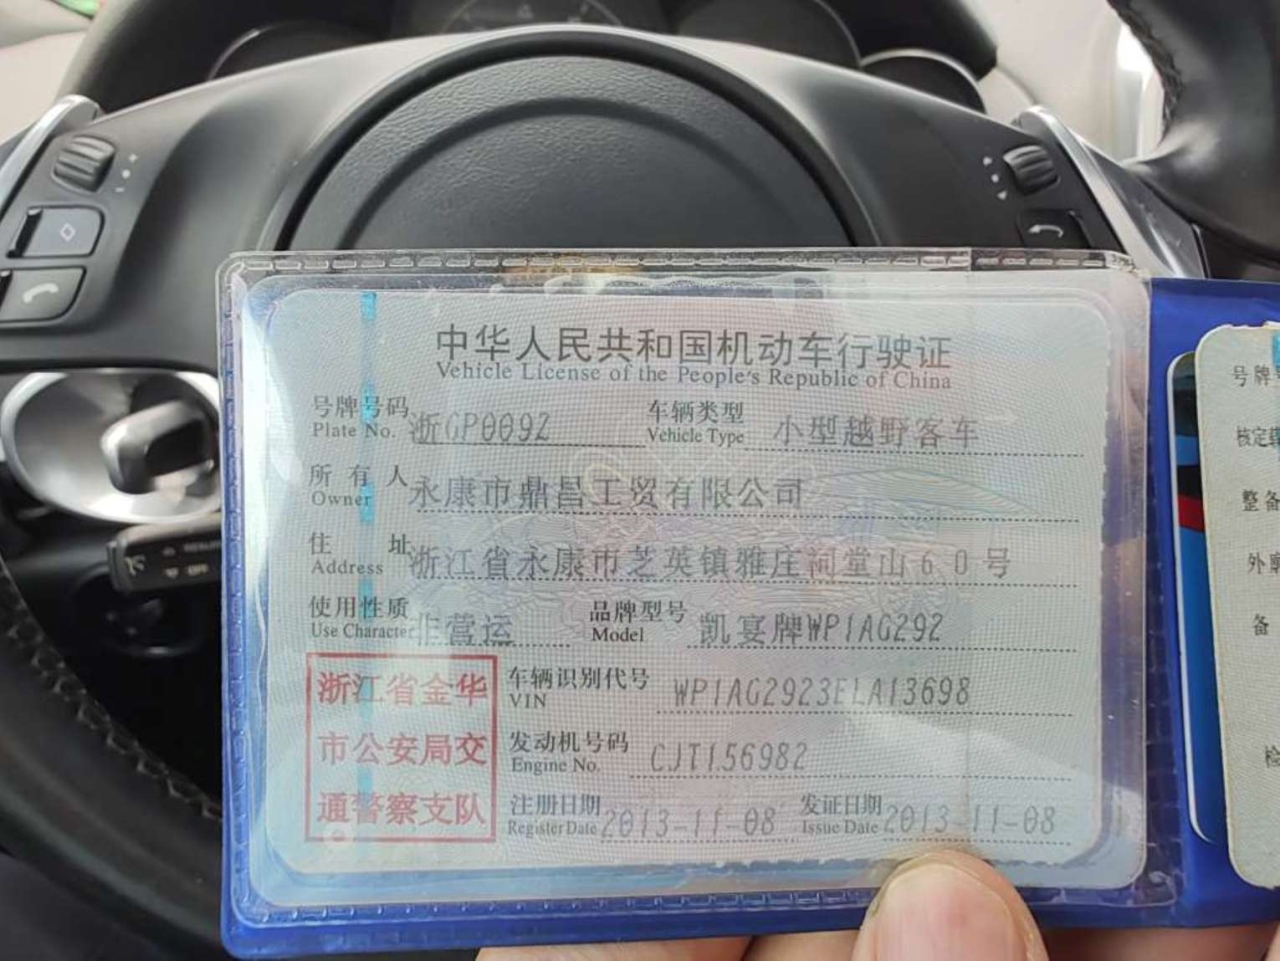 中华人民共和国机动车行驶证
Vehicle License of the People's Republic of China
号牌号码 浙GP0092 车辆类型 小型越野客车
Plate No. Vehicle Type
所有人 永康市鼎昌工贸有限公司
Owner
住址 浙江省永康市芝英镇雅庄祠堂山60号
Address
使用性质 非营运 品牌型号 凯宴牌WP1AG292
Use Character Model
浙江省金华
市公安局交
通警察支队
车辆识别代号 WP1AG2923ELA13698
VIN
发动机号码 CJT156982
Engine No.
注册日期 2013-11-08 发证日期 2013-11-08
Register Date Issue Date
号牌
核定
整备
外廓
备
检